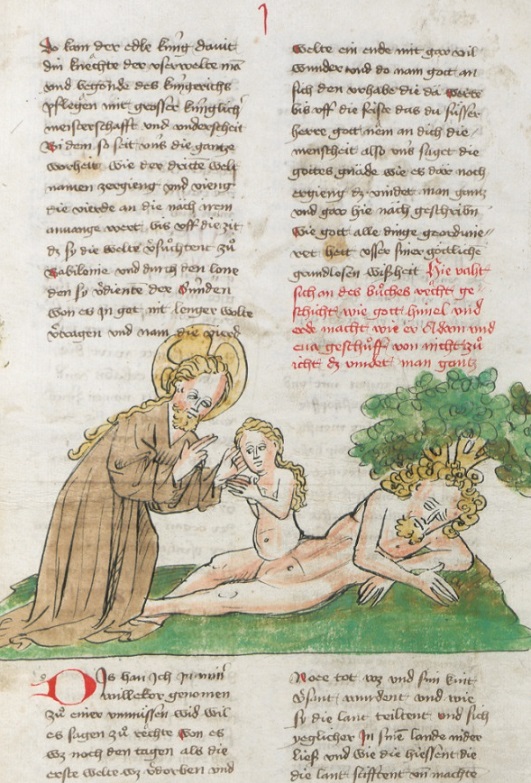 1
Do kam der edle küng dauit
din knechte der vserwelte mā
vnd begonde des küngerichs
pflegen mit grosser künglich͛
meisterschafft vnd vnderscheit
Bi dem so seit uns die gantze
worheit wie der dritte welt
namen zergieng vnd vieng
die vierde an die nach irem
anuange wert bis vff die zit
dz sy die welte
Babilonie vnd durch den lone
den sy v͛diente der Sunden
Won es in got nit lenger wolte
v͛tragen vnd nam die vierd
Welte ein ende mit gar vil
wunder vnd do nam gott an
sich den vrhabe die da werte
bis vff die frist das du süsser
herre gott nem an dich die
menscheit also uns saget die
gottes gnade wie es dar noch
ergieng dz vindet man gantz
vnd gar hie nach geschribn̄
Wie gott alle dinge geordinie
ret hett vsser siner götliche
grundlosen wißheit Hie valht
sich an des bůches rechte ge
schicht wie gott himel vnd
erde macht wie er Adam vnd
eua geschůff von nicht zů
icht dz vindet man gantz
Dis han Ich in min
willekor genomen
zů einer vnmüssen wid wil
es sagen zů rechte von es
wz noch den tagen als die
erste welte wz v͛dorben vnd
Noee tot wz vnd sin kint
vnd wie
sy die lant teiltent vnd sich
yeglicher In sine lande nider
ließ vnd wie die hiessent die
die lant stifftent vn̄ machte